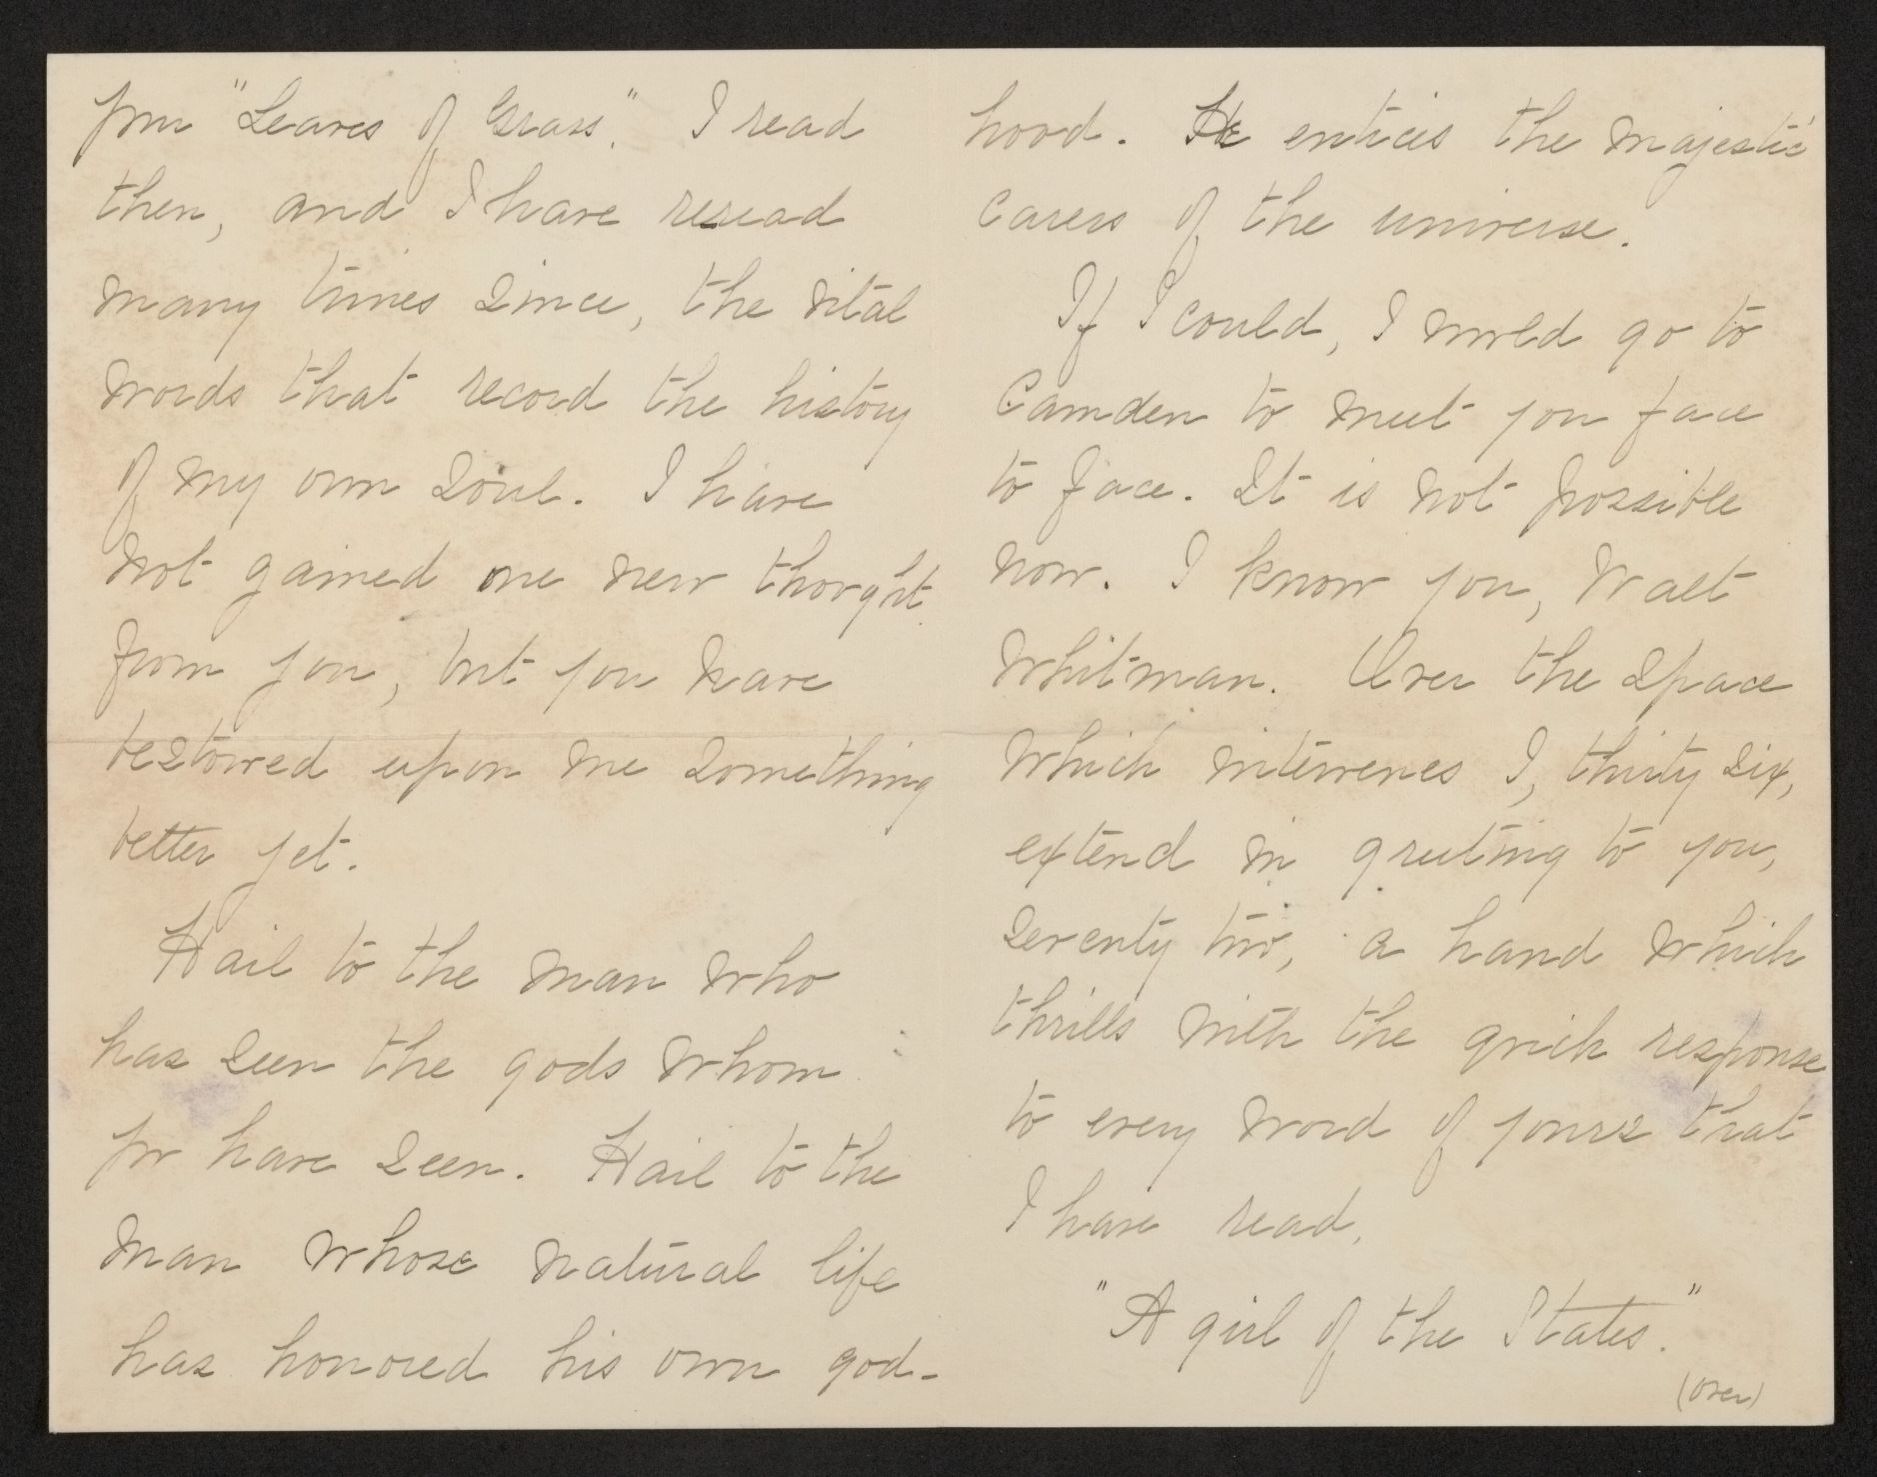 from "Leaves of Grass." I read
then, and I have reread
many times since, the vital
words that record the history
of my own soul. I have
not gained one new thought
from you, but you have
bestowed upon me something
better yet.
Hail to the man who
has seen the gods whom
few have seen. Hail to the
man whose natural life
has honored his own god-
hood. He entices the majestic
carers of the universe.
If I could, I would go to
Camden to meet you face
to face. It is not possible
now. I know you, Walt
Whitman. Over the space
which intervenes I, thirty six,
extend in greeting to you,
seventy two, a hand which
thrills with the quick response
to every word of yours that
I have read.
"A girl of the States."
(over)